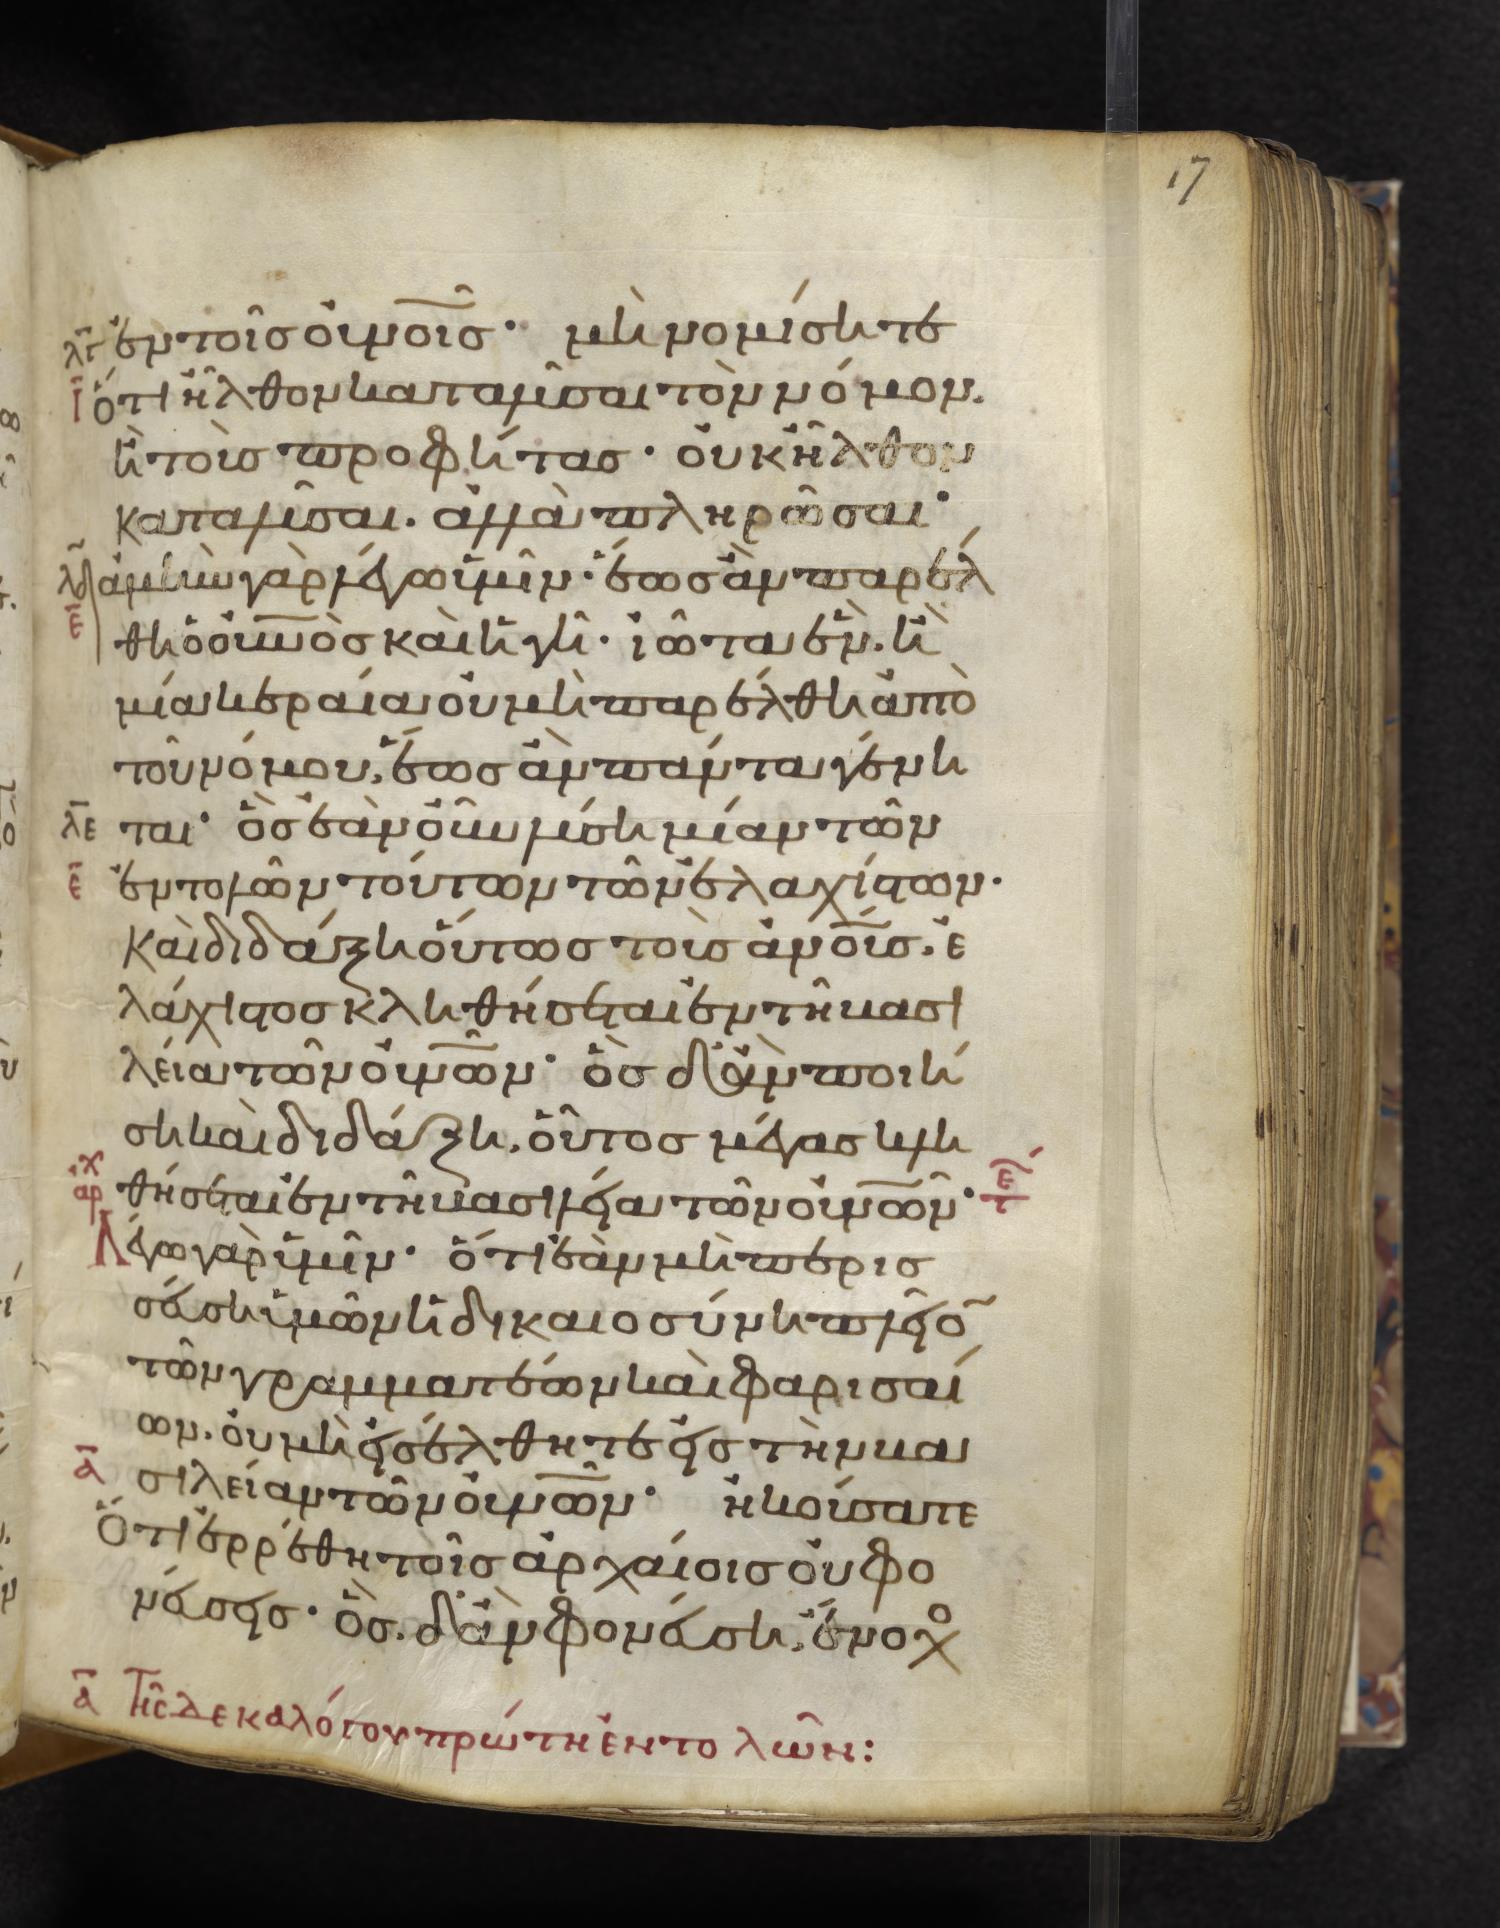 17
λγ ἐν τοῖς οὐνοῖς· μὴ νομίσητε
ι ὅτι ἦλθον καταλῦσαι τὸν νόμον.
ἢ τοὺς προφήτας· οὐκ ἦλθον
καταλῦσαι. ἀλλὰ πληρῶσαι·
λδ ἀμὴν γὰρ λέγω ὑμῖν· ἕως ἂν παρέλ
ε θη ὁ οὐνὸς καὶ ἡ γῆ· ἰῶτα ἓν. ἢ
μία κεραία οὐ μὴ παρέλθη ἀπὸ
τοῦ νόμου, ἕως ἂν πάντα γένη
λε ται· ὃς ἐὰν οὖν λύση μίαν τῶν
ε ἐντολῶν τούτων τῶν ἐλαχίστων·
καὶ διδάξη οὕτως τοὺς ἀνοὺς. ἐ
λάχιστος κληθήσεται ἐν τῆ βασι
λεία τῶν οὐνῶν· ὃς δ' ἂν ποιή
ση καὶ διδάξη, οὗτος μέγας κλη
αρχ θήσεται ἐν τῆ βασιλεία τῶν οὐνῶν· τε
Λέγω γὰρ ὑμῖν· ὅτι ἐὰν μὴ περισ
σεύση ὑμῶν ἡ δικαιοσύνη πλεῖο
τῶν γραμματέων καὶ φαρισαί
ων. οὐ μὴ εἰσέλθητε εἰς τὴν βα
α σιλείαν τῶν οὐνῶν· ἠκούσατε
Ὅτι ἐρρέθη τοῖς ἀρχαίοις οὐ φο
νεύσεις· ὃς. δ' ἂν φονεύση, ἔνοχο
α Τῆς δεκαλόγου πρώτη ἐντολῶν: